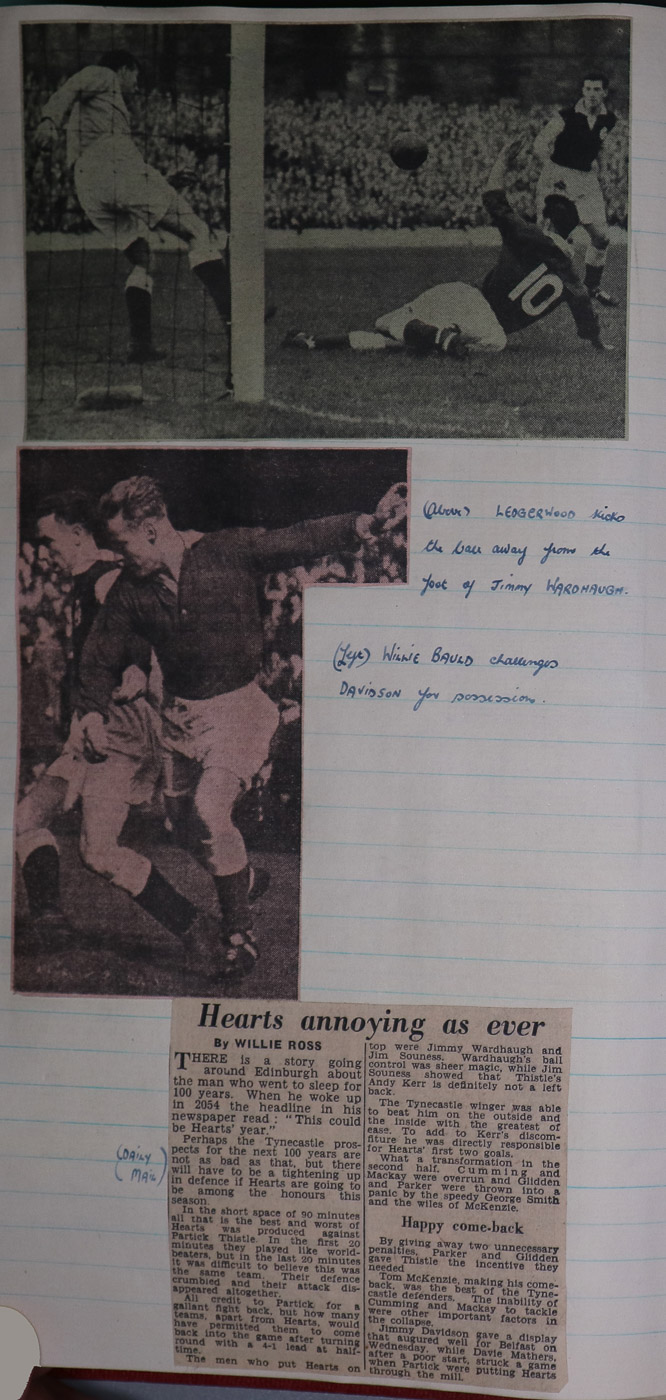 10
(Above) LEDGERWOOD kicks
the ball away from the
foot of Jimmy WARDHAUGH.
(Left) WILLIE BAULD challenges
DAVIDSON for possession.
Hearts annoying as ever
By WILLIE ROSS
THERE is a story going
around Edinburgh about
the man who went to sleep for
100 years. When he woke up
in 2054 the headline in his
newspaper read : "This could
be Hearts' year."
Perhaps the Tynecastle pros-
pects for the next 100 years are
not as bad as that, but there
will have to be a tightening up
in defence if Hearts are going to
be among the honours this
season.
In the short space of 90 minutes
all that is the best and worst of
Hearts was produced against
Partick Thistle. In the first 20
minutes they played like world-
beaters, but in the last 20 minutes
it was difficult to believe this was
the same team. Their defence
crumbled and their attack dis-
appeared altogether.
All credit to Partick for a
gallant fight back, but how many
teams, apart from Hearts, would
have permitted them to come
back into the game after turning
round with a 4-1 lead at half-
time.
The men who put Hearts on
top were Jimmy Wardhaugh and
Jim Souness. Wardhaugh's ball
control was sheer magic, while Jim
Souness showed that Thistle's
Andy Kerr is definitely not a left
back.
The Tynecastle winger was able
to beat him on the outside and
the inside with the greatest of
ease. To add to Kerr's discom-
fiture he was directly responsible
for Hearts' first two goals.
What a transformation in the
second half. Cumming and
Mackay were overrun and Glidden
and Parker were thrown into a
panic by the speedy George Smith
and the wiles of McKenzie.
Happy come-back
By giving away two unnecessary
penalties, Parker and Glidden
gave Thistle the incentive they
needed
Tom McKenzie, making his come-
back, was the best of the Tyne-
castle defenders. The inability of
Cumming and Mackay to tackle
were other important factors in
the collapse.
Jimmy Davidson gave a display
that augured well for Belfast on
Wednesday, while Davie Mathers,
after a poor start, struck a game
when Partick were putting Hearts
through the mill.
(DAILY
MAIL)